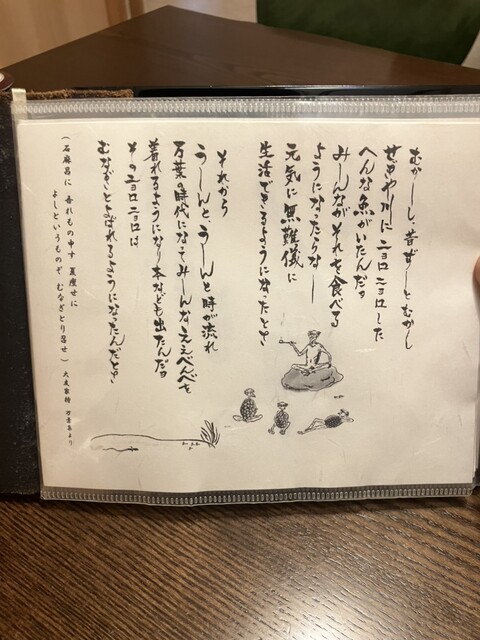 むかーしし、昔ずーとむかし
ぜぜや川にニョロニョロした
へんな魚がいたんだョ
みーんながそれを食べる
ようになったらなー
元気に無難儀に
生活できるようになったとさ
それから
うーんと、うーんと時が流れ
万葉の時代になってみーんなええべべを
着れるようになり本なども出たんだョ
そのニョロニョロは
むなぎとよばれるようになったんだとさ
(石麻呂に 吾れもの申す 夏痩せに
よしというものぞ むなぎとり召せ) 大友家持 万葉集より